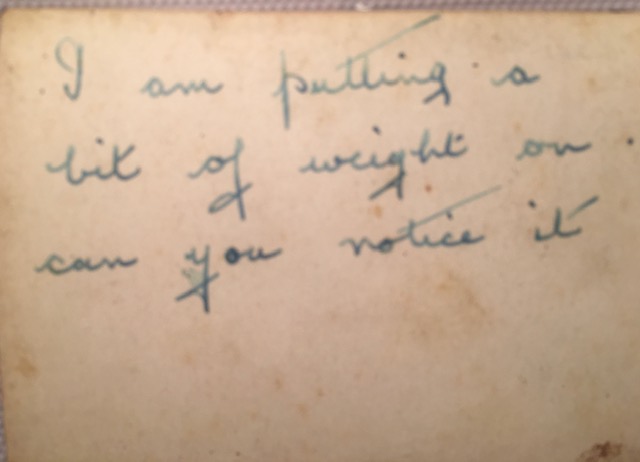 I am putting a
bit of weight on.
can you notice it